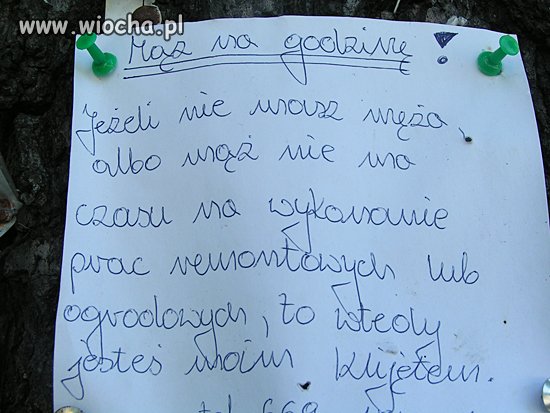 www.wiocha.pl
Mąż na godzinę !
Jeżeli nie masz męża,
albo mąż nie ma
czasu na wykonanie
prac remontowych lub
ogrodowych, to wtedy
jesteś moim klijętem.
tel 669